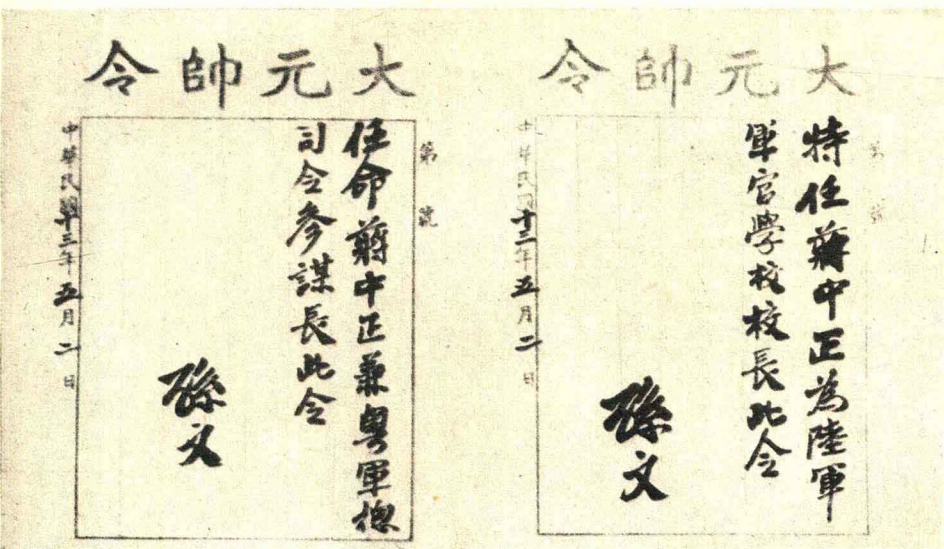 大元帥令
第 號
特任蔣中正為陸軍
軍官學校校長此令
孫文
中華民國十三年五月二日
大元帥令
第 號
任命蔣中正兼粵軍總
司令參謀長此令
孫文
中華民國十三年五月二日